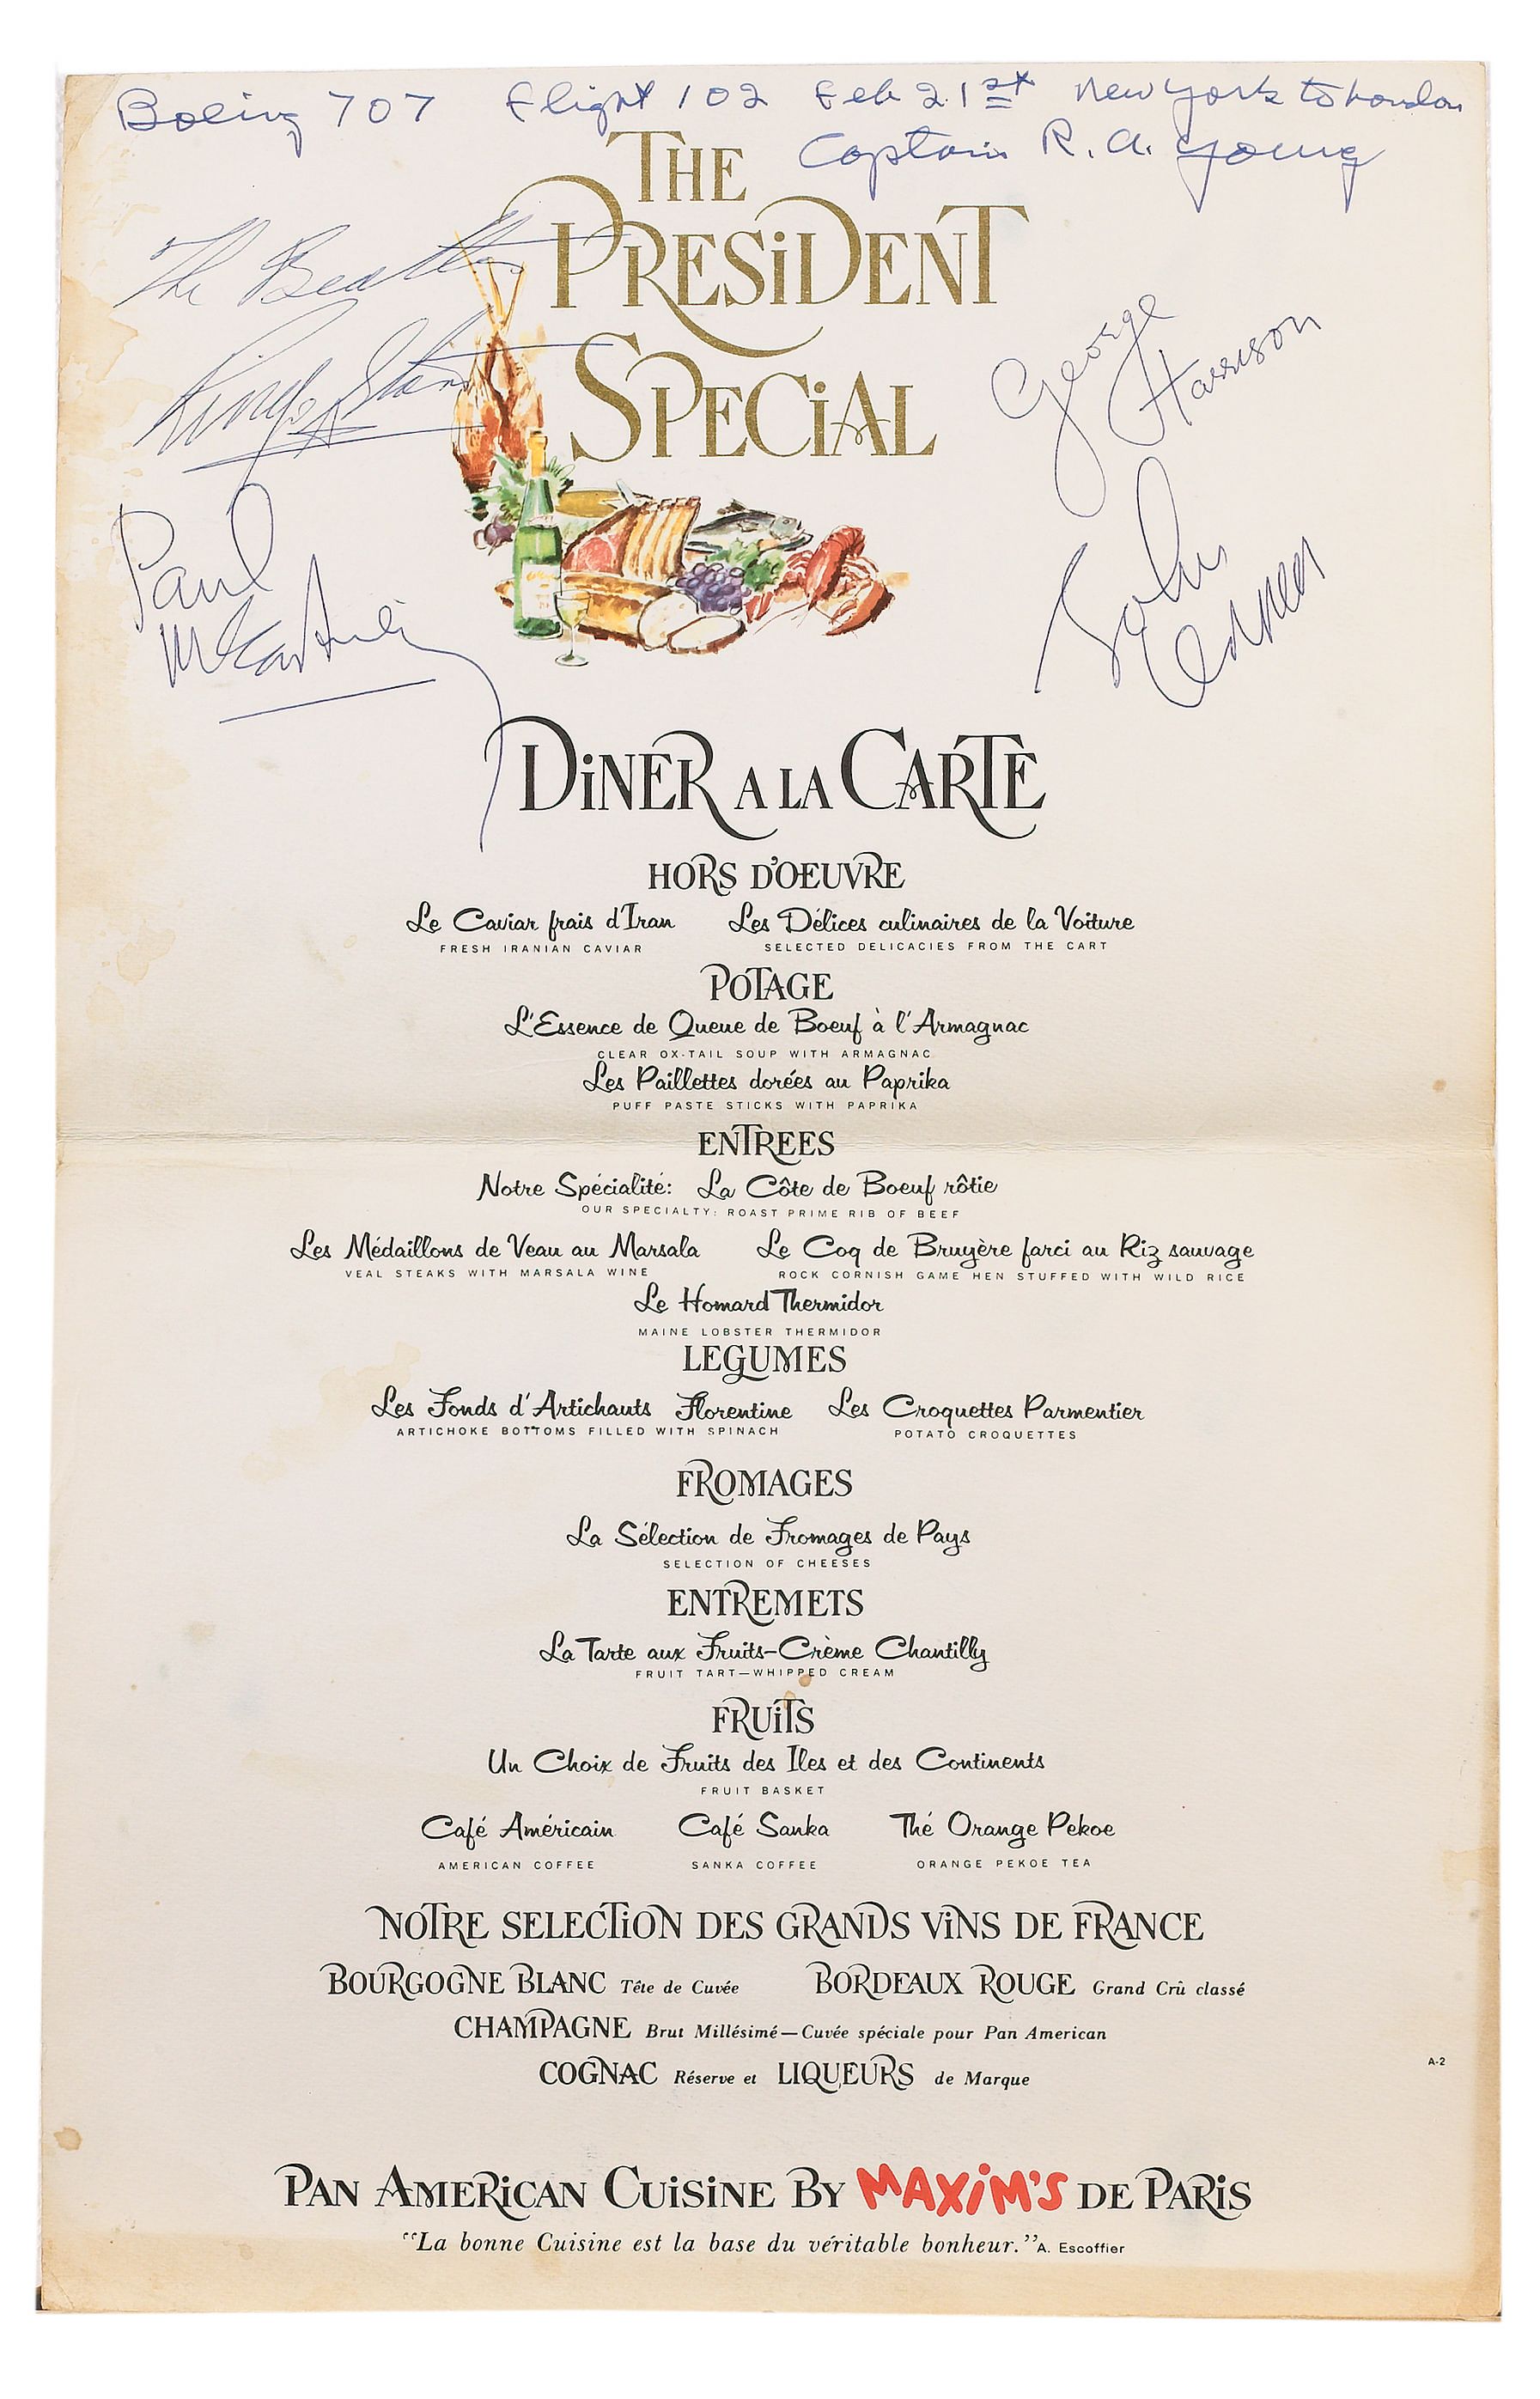 Boeing 707 Flight 102 Feb 21st New York to London
Captain R. A. Young
THE
PRESiDENT
SPECiAL
The Beatles
Ringo Starr
Paul
McCartney
George
Harrison
John
Lennon
DiNER A LA CARTE
HORS D'OEUVRE
Le Caviar frais d'Iran Les Délices culinaires de la Voiture
FRESH IRANIAN CAVIAR SELECTED DELICACIES FROM THE CART
POTAGE
L'Essence de Queue de Boeuf à l'Armagnac
CLEAR OX-TAIL SOUP WITH ARMAGNAC
Les Paillettes dorées au Paprika
PUFF PASTE STICKS WITH PAPRIKA
ENTREES
Notre Spécialité: La Côte de Boeuf rôtie
OUR SPECIALTY: ROAST PRIME RIB OF BEEF
Les Médaillons de Veau au Marsala Le Coq de Bruyère farci au Riz sauvage
VEAL STEAKS WITH MARSALA WINE ROCK CORNISH GAME HEN STUFFED WITH WILD RICE
Le Homard Thermidor
MAINE LOBSTER THERMIDOR
LEGUMES
Les Fonds d'Artichauts Florentine Les Croquettes Parmentier
ARTICHOKE BOTTOMS FILLED WITH SPINACH POTATO CROQUETTES
FROMAGES
La Sélection de Fromages de Pays
SELECTION OF CHEESES
ENTREMETS
La Tarte aux Fruits-Crème Chantilly
FRUIT TART—WHIPPED CREAM
FRUiTS
Un Choix de Fruits des Iles et des Continents
FRUIT BASKET
Café Américain Café Sanka Thé Orange Pekoe
AMERICAN COFFEE SANKA COFFEE ORANGE PEKOE TEA
NOTRE SELECTiON DES GRANDS ViNS DE FRANCE
BOURGOGNE BLANC Tête de Cuvée BORDEAUX ROUGE Grand Crû classé
CHAMPAGNE Brut Millésimé—Cuvée spéciale pour Pan American
COGNAC Réserve et LIQUEURS de Marque
A-2
PAN AMERiCAN CUiSiNE BY MAXiM'S DE PARiS
"La bonne Cuisine est la base du véritable bonheur." A. Escoffier